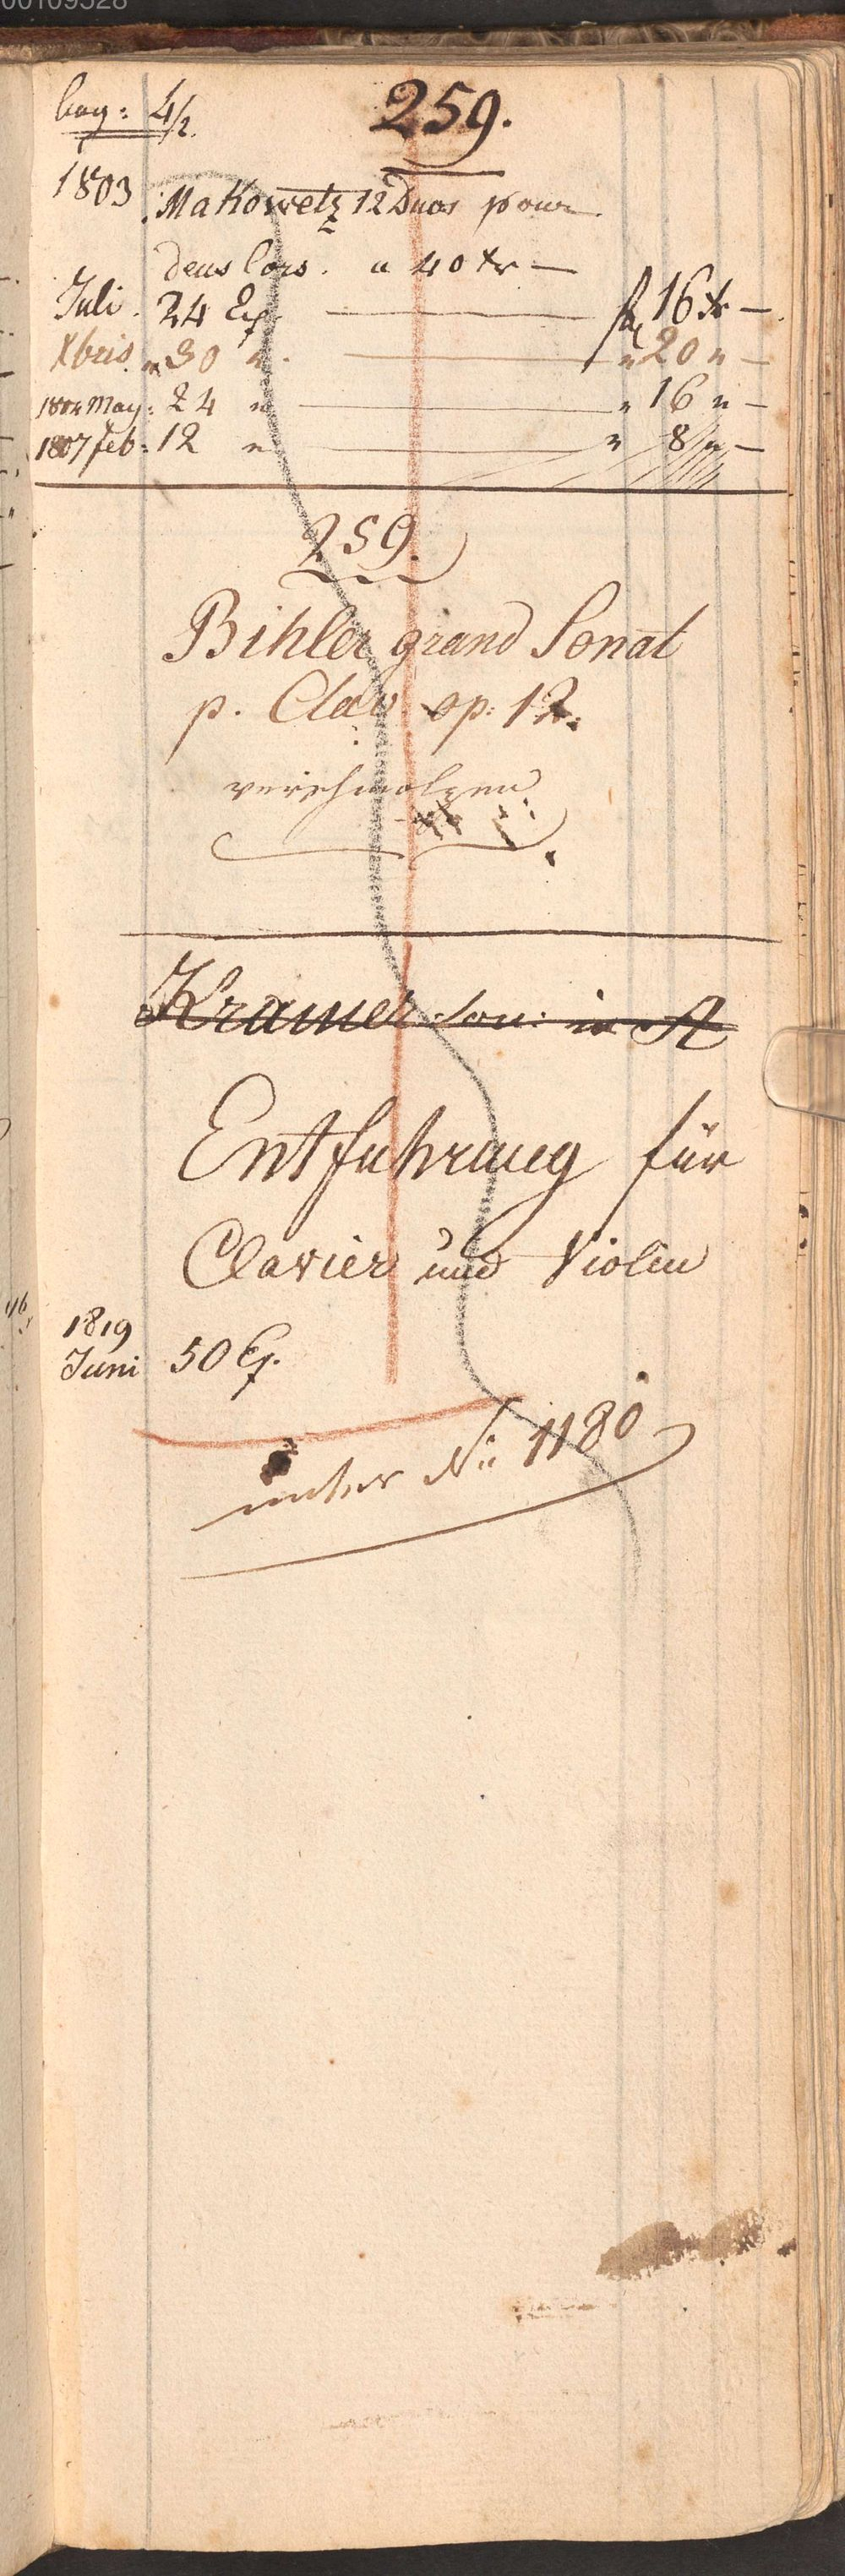 00109528
bog: 4/2.
259.
1803 Makowetz 12 Duos pour
deus Cors. a 40 xr —
Juli. 24 Exp. — fl 16 xr —
Xbris " 30 " — " 20 " —
1804 May: 24 " — " 16 " —
1807 feb: 12 " — " 8 " —
259.
Bihler grand Sonat
p. Clav. op: 12.
verschmolzen
Kramer son: in A
Entfuhrung für
Clavier und Violin
1819
Juni 50 Ex.
unter No 1180